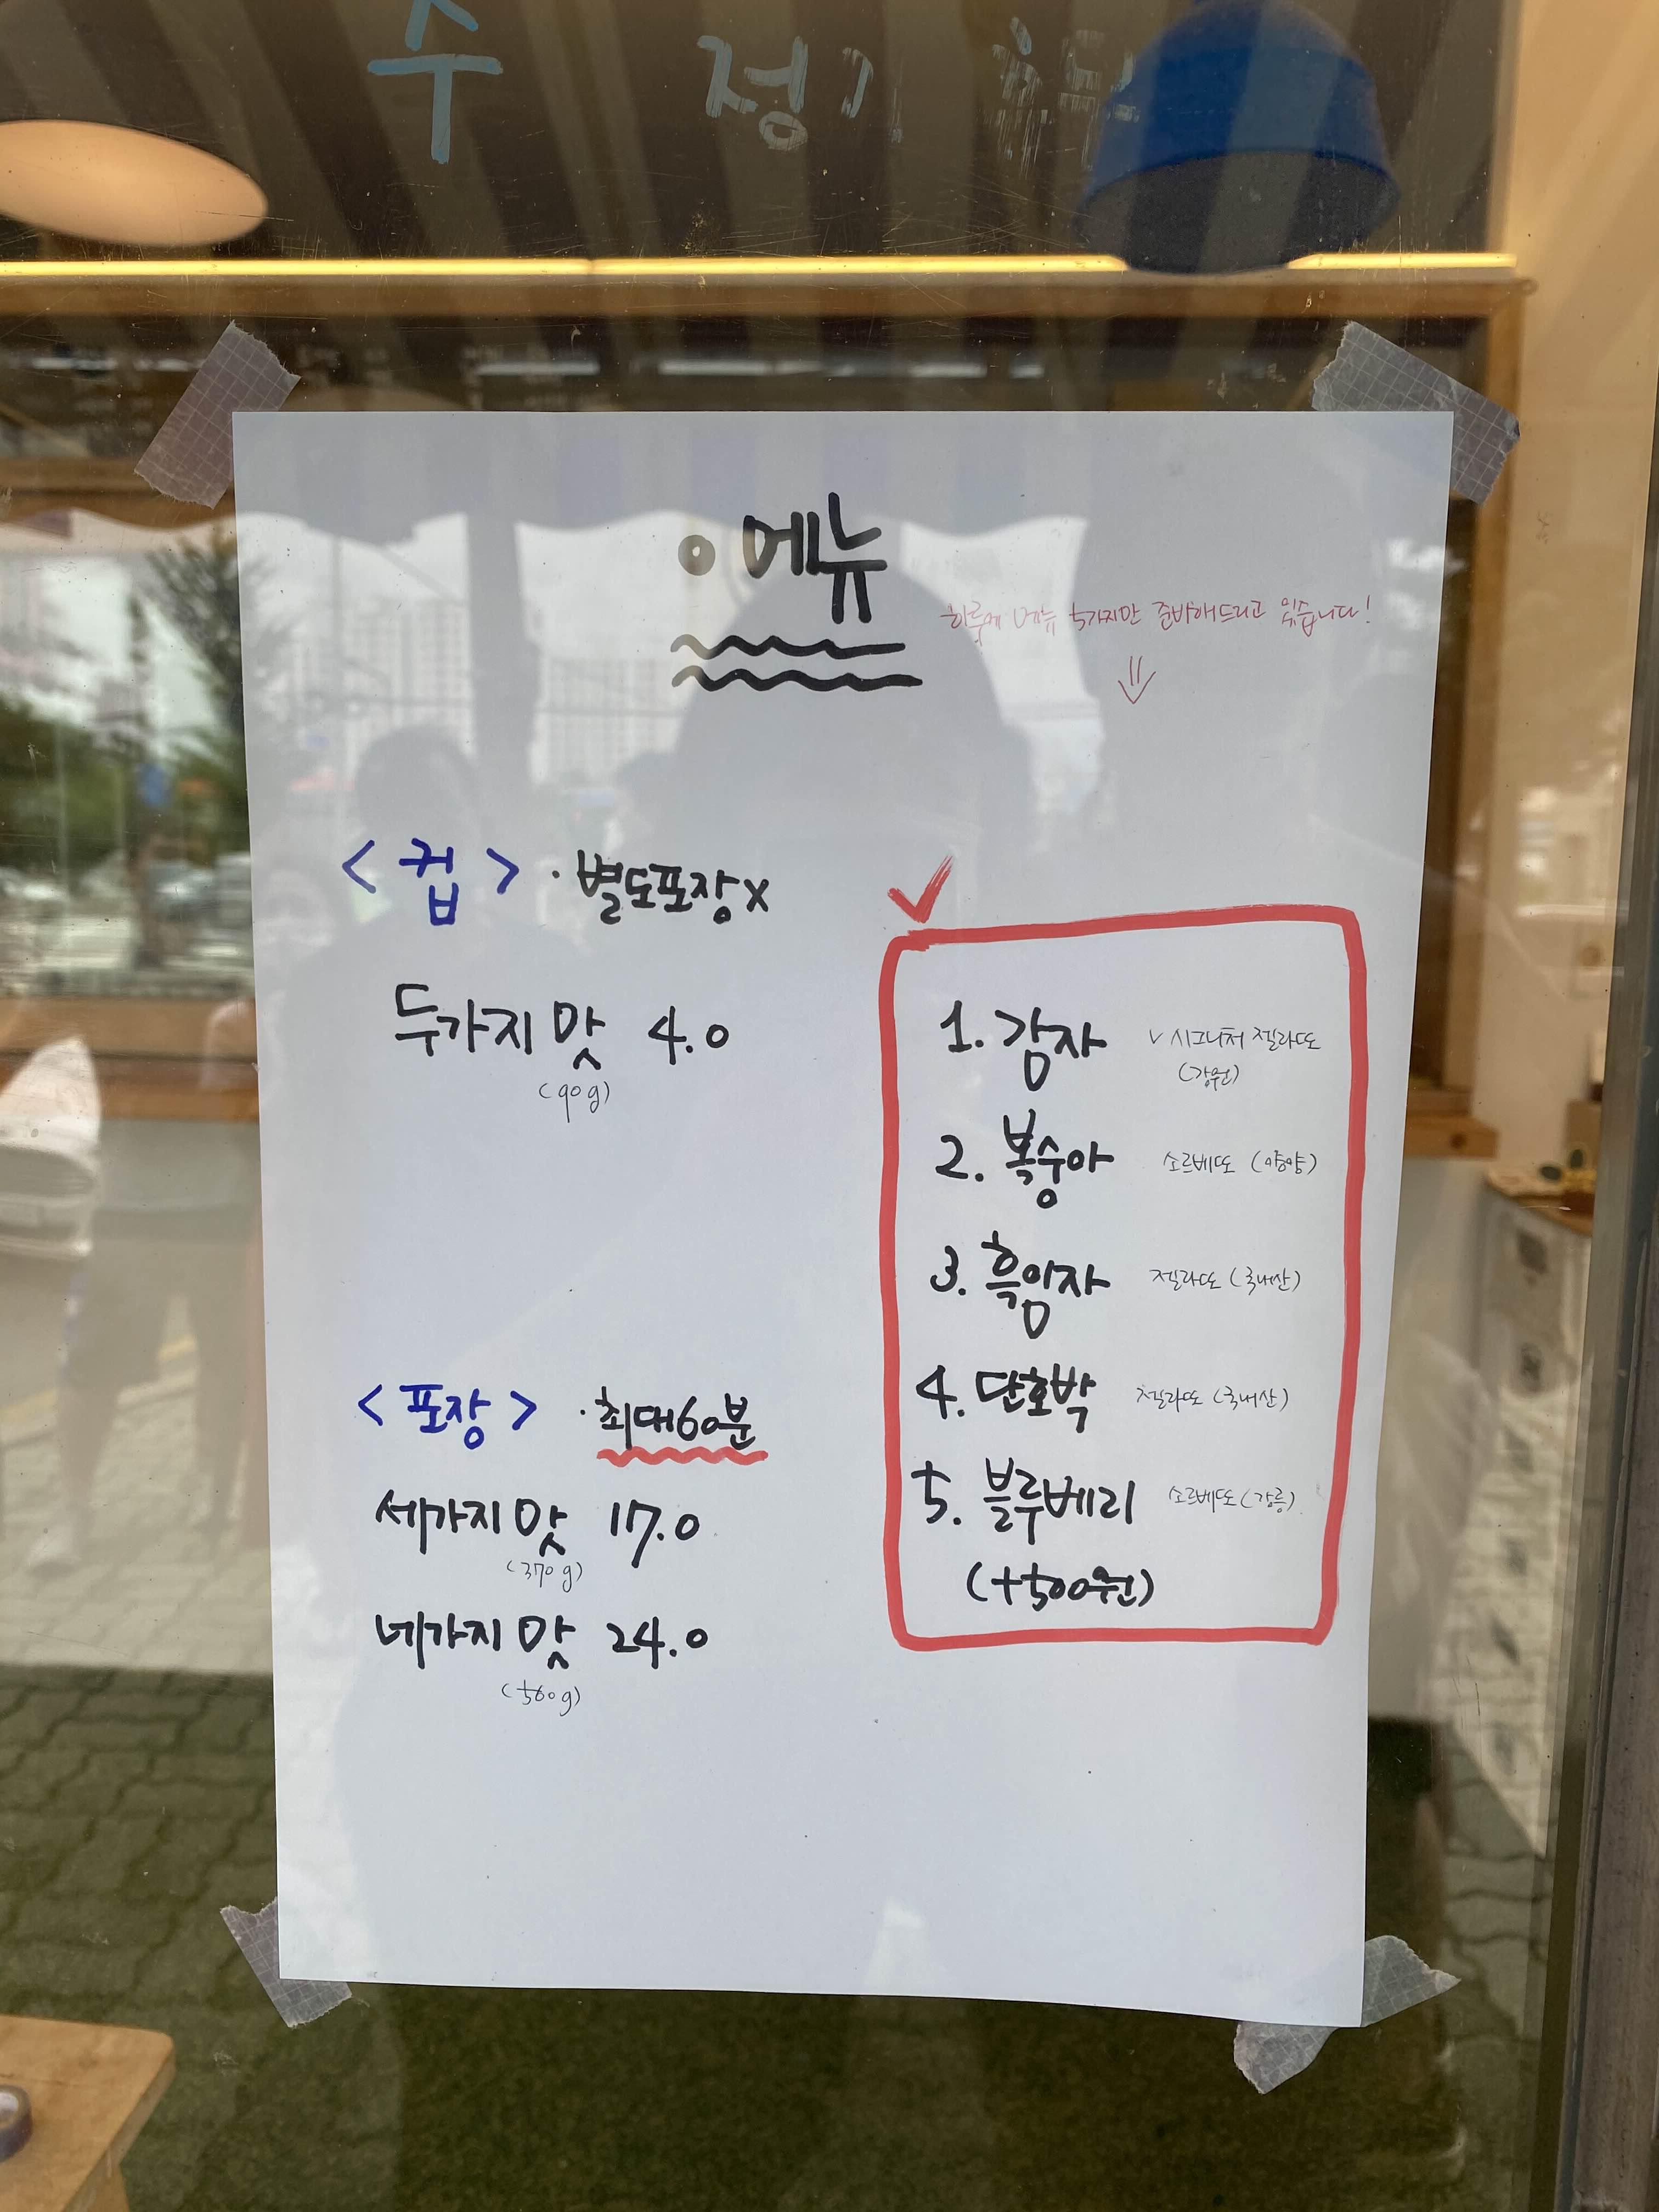 수 정
○ 메뉴
하루에 메뉴 5가지만 준비해드리고 있습니다!
< 컵 > · 별도포장x
두가지 맛 4.0
(90g)
< 포장 > · 최대60분
세가지 맛 17.0
(370g)
네가지 맛 24.0
(560g)
1. 감자 v 시그니처 젤라또
(강원)
2. 복숭아 소르베또 (양양)
3. 흑임자 젤라또 (국내산)
4. 단호박 젤라또 (국내산)
5. 블루베리 소르베또 (강릉)
(+500원)